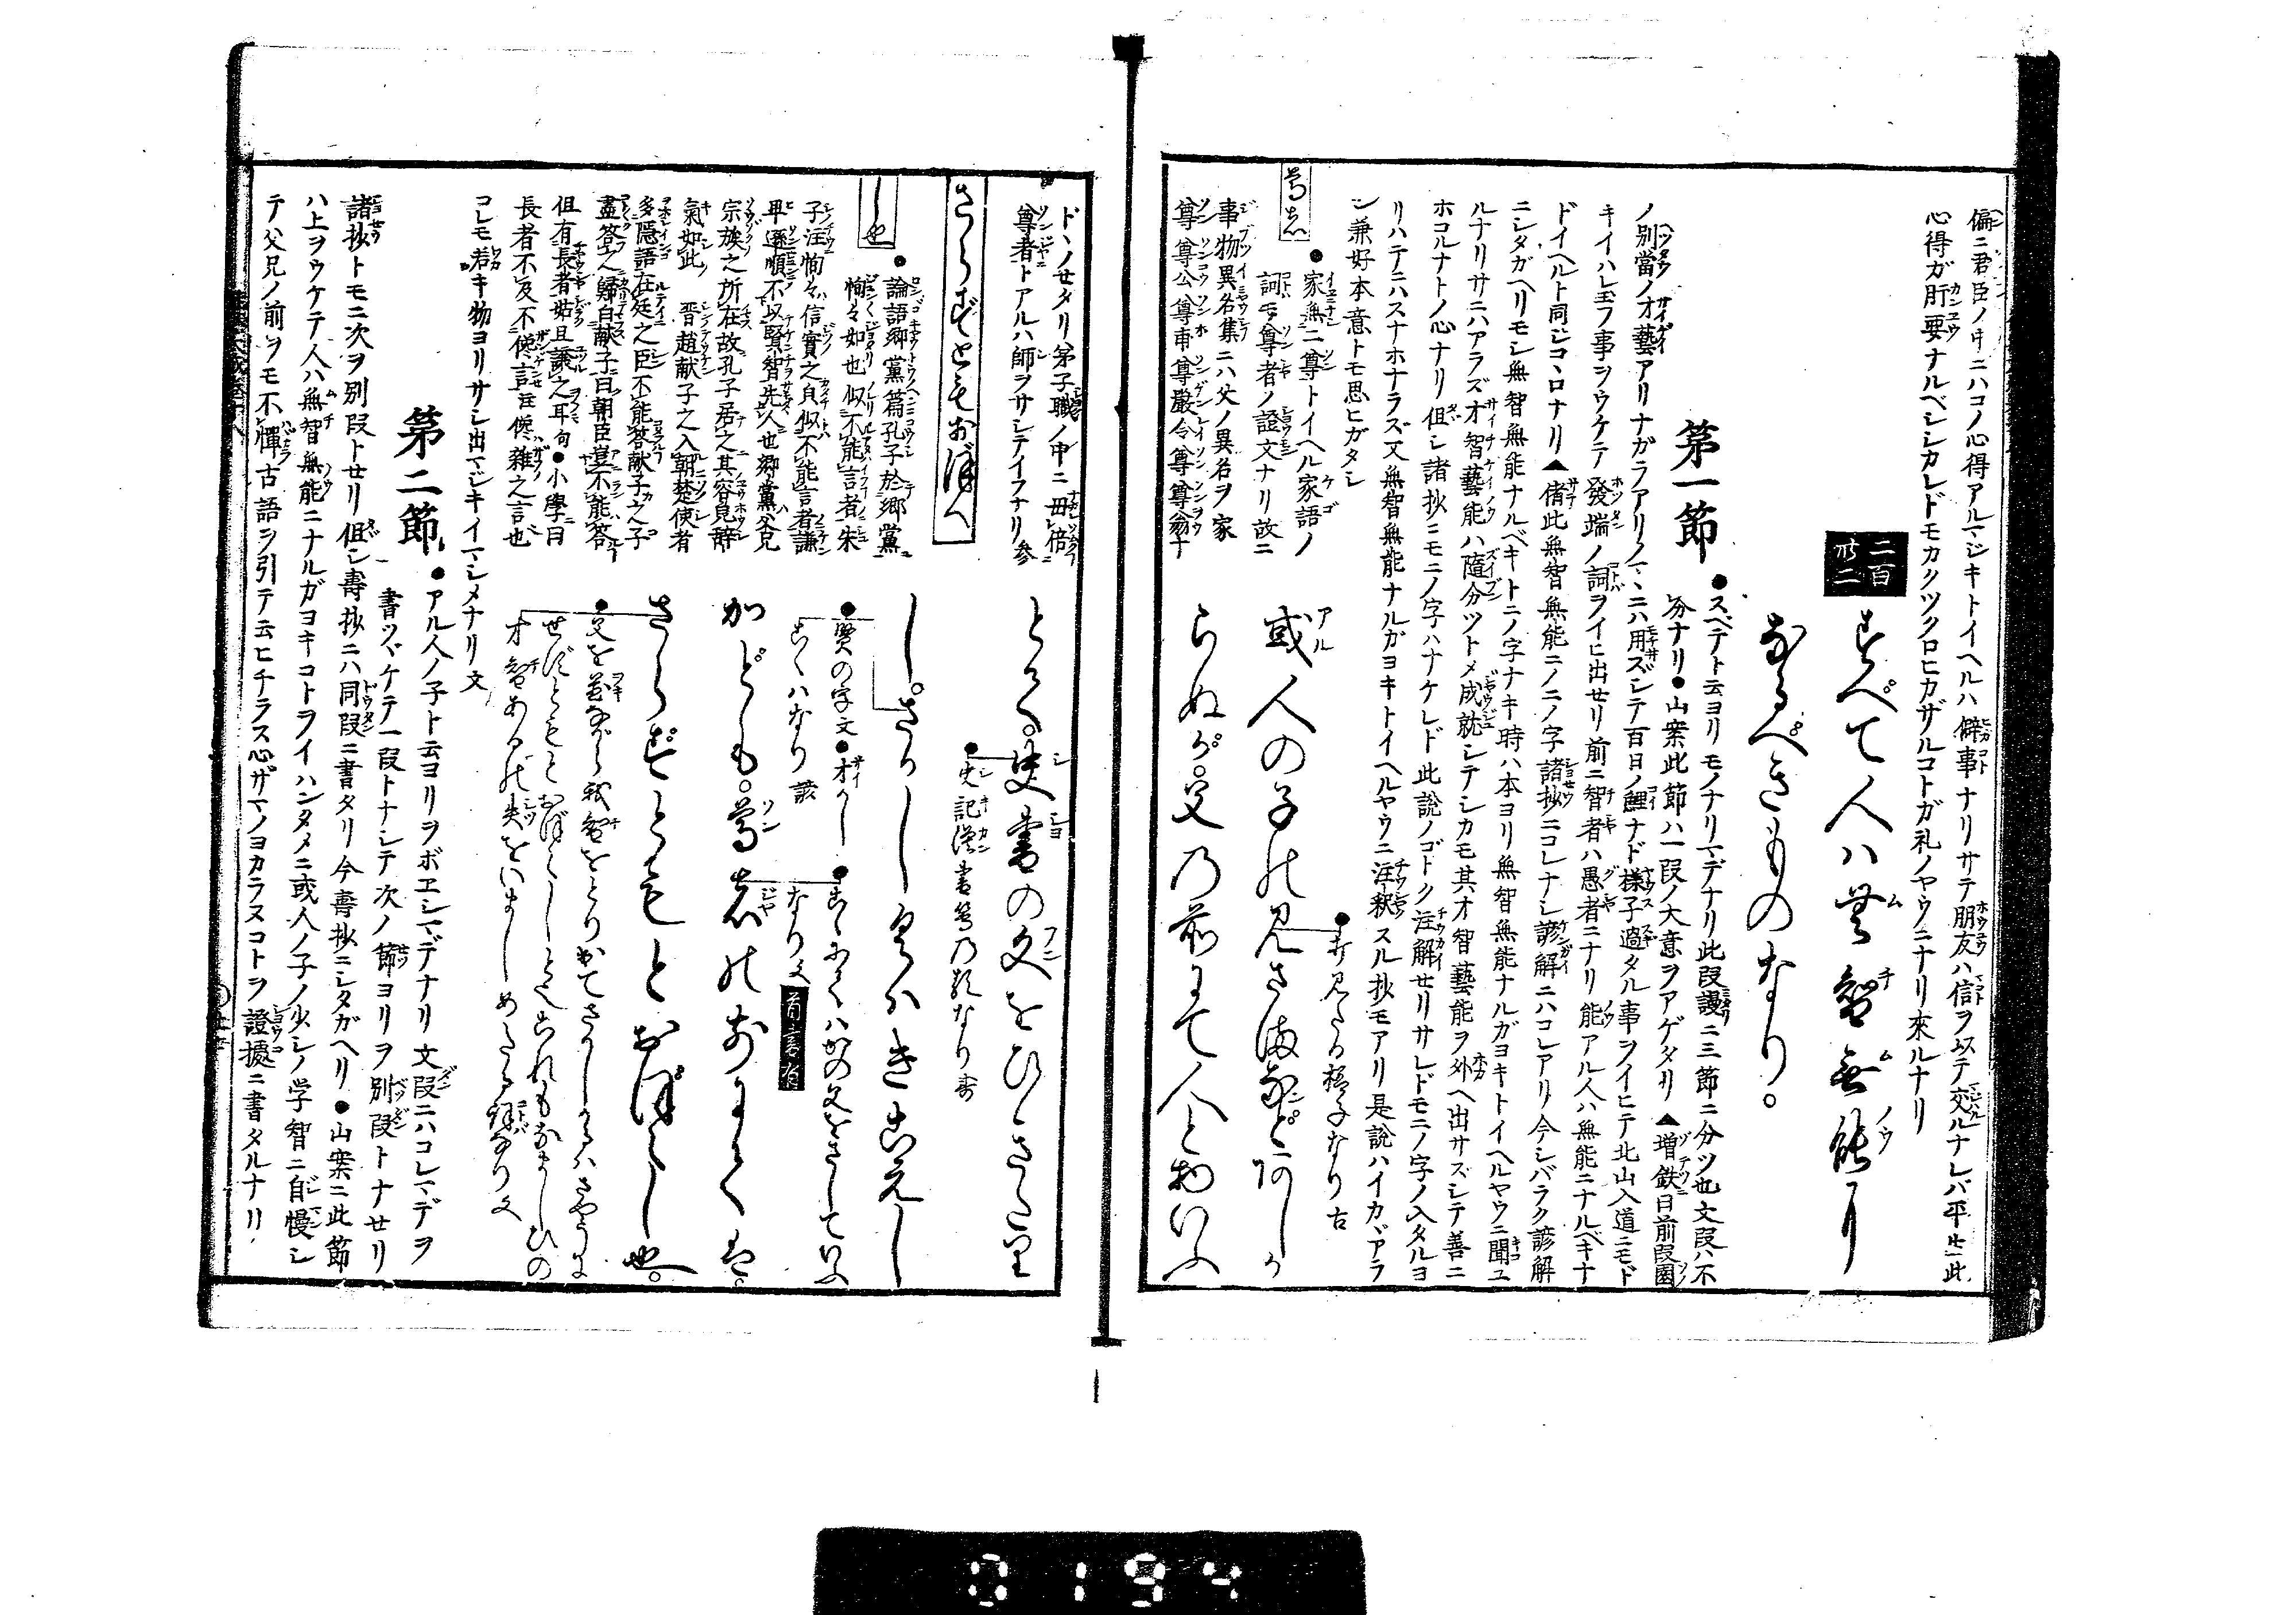 偏ニ君臣ノ中ニハコノ心得アルマジキトイヘルハ僻事ナリサテ朋友ハ信ヲ以テ交ルナレバ平生此
心得ガ肝要ナルベシシカレドモカクツクロヒカザルコトガ礼ノヤウニナリ來ルナリ
二百卅二
すべて人ハ無智無能に
なるべきものなり。
第一節
●スベテト云ヨリモノナリマデナリ此段謾ニ三節ニ分ツ也文段ハ不
分ナリ●山案此節ハ一段ノ大意ヲアゲタリ▲増鉄曰前段園
ノ別當ノオ藝アリナガラアリノマヽニハ用ズシテ百日ノ鯉ナド様子過タル事ヲイヒテ北山入道ニモド
キイハレ玉フ事ヲウケテ發端ノ詞ヲイヒ出せリ前ニ智者ハ愚者ニナリ能アル人ハ無能ニナルベキナ
ドイヘルト同ジコヽロナリ▲偖此無智無能ニノニノ字諸抄ニコレナシ諺解ニハコレアリ今シバラク諺解
ニシタガヘリモシ無智無能ナルベキトニノ字ナキ時ハ本ヨリ無智無能ナルガヨキトイヘルヤウニ聞ユ
ルナリサニハアラズオ智藝能ハ隨分ツトメ成就シテシカモ其オ智藝能ヲ外ヘ出サズシテ善ニ
ホコルナトノ心ナリ但シ諸抄ニモニノ字ハナケレド此説ノゴトク注解せリサレドモニノ字ノ入タルヨ
リハテニハスナホナラズ又無智無能ナルガヨキトイヘルヤウニ注釈スル抄モアリ是説ハイカヾアラ
ン兼好本意トモ思ヒガタシ
尊者
●家無二尊トイヘル家語ノ
詞モ尊者ノ證文ナリ故ニ
事物異名集ニハ父ノ異名ヲ家
尊尊公尊甫尊嚴令尊尊翁ナ
●形見たる様子なり古
或人の子の見ざまなどあしか
らぬが。父の前にて人と物いふ
ドヽノせタリ弟子職ノ中ニ毋倍
尊者トアルハ師ヲサシテイフナリ参
とて。史書の文をひきたり
●史記漢書等の類なり寿
さらずともおぼへ
し。さかしくはきこえし
し也
●論語郷黨篇孔子於郷黨
恂々如也似不能言者朱
子注恂々信實之貌似不能言者謙
卑遜順不以賢智先人也郷黨父兄
宗族之所在故孔子居之其容貌辞
氣如此 晋趙献子之入朝楚使者
多隠語在廷之臣不能答献子之子
盡答之歸白献子曰朝臣豈不能答
但有長者姑且讓之耳句●小學曰
長者不及不儳言註儳雜之言也
コレモ若キ物ヨリサシ出マジキイマシメナリ文
●賢の字文●才かし
こくハなり諺
●こゝにてハかの父をさしていふ
なり文
かども。尊者の前にては。
さらずともとおぼえし也。
●父を前ながら我智をとりかてさかしかるハさやうに
せずともとおぼえしとこれもなまじひの
才智あるの失をいましめたる詞なり文
第二節
●アル人ノ子ト云ヨリヲボエシマデナリ文段ニハコレマデヲ
書ツヾケテ一段トナシテ次ノ節ヨリヲ別段トナせリ
諸抄トモニ次ヲ別段トせリ但シ壽抄ニハ同段ニ書タリ今壽抄ニシタガヘリ●山案ニ此節
ハ上ヲウケテ人ハ無智無能ニナルガヨキコトヲイハンタメニ或人ノ子ノ少シノ学智ニ自慢シ
テ父兄ノ前ヲモ不憚古語ヲ引テ云ヒチラス心ザマノヨカラヌコトヲ證據ニ書タルナリ
0194